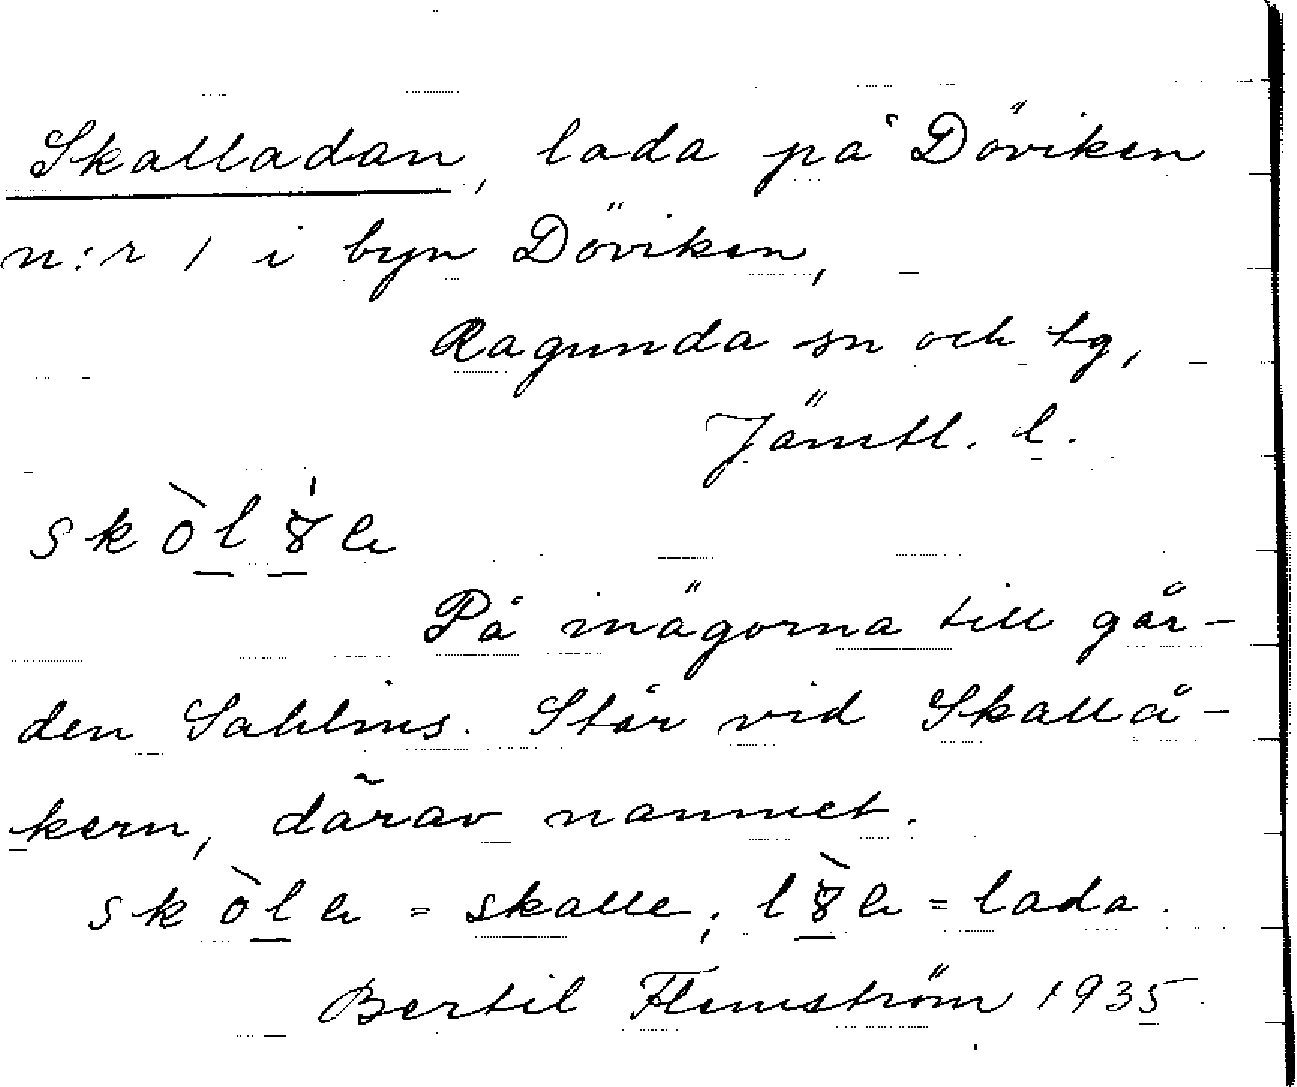 Skalladan, lada på Döviken
n:r 1 i byn Döviken,
Ragunda sn och tg,
Jämtl. l.
På inägorna till går-
den Sahlins. Står vid Skallå-
kern, därav namnet.
= skalle; = lada.
Bertil Flemström 1935.